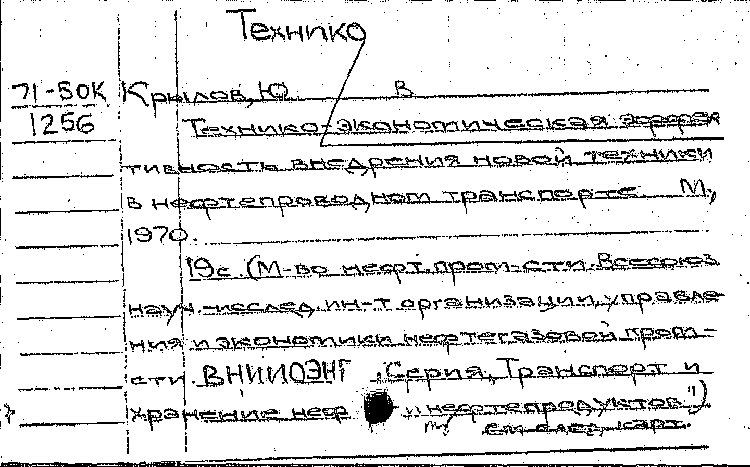 Технико
71-БОК Крылов, Ю В
1256 Технико-экономическая эффек
тивность внедрения новой техники
в нефтепроводном транспорте. М.,
1970.
19с. (М-во нефт. пром-сти. Всесоюз
науч.-исслед. ин-т организации, управле-
ния и экономики нефтегазовой пром-
сти. ВНИИОЭНГ. Серия, Транспорт и
хранение неф и нефтепродуктов")
см. след. карт.